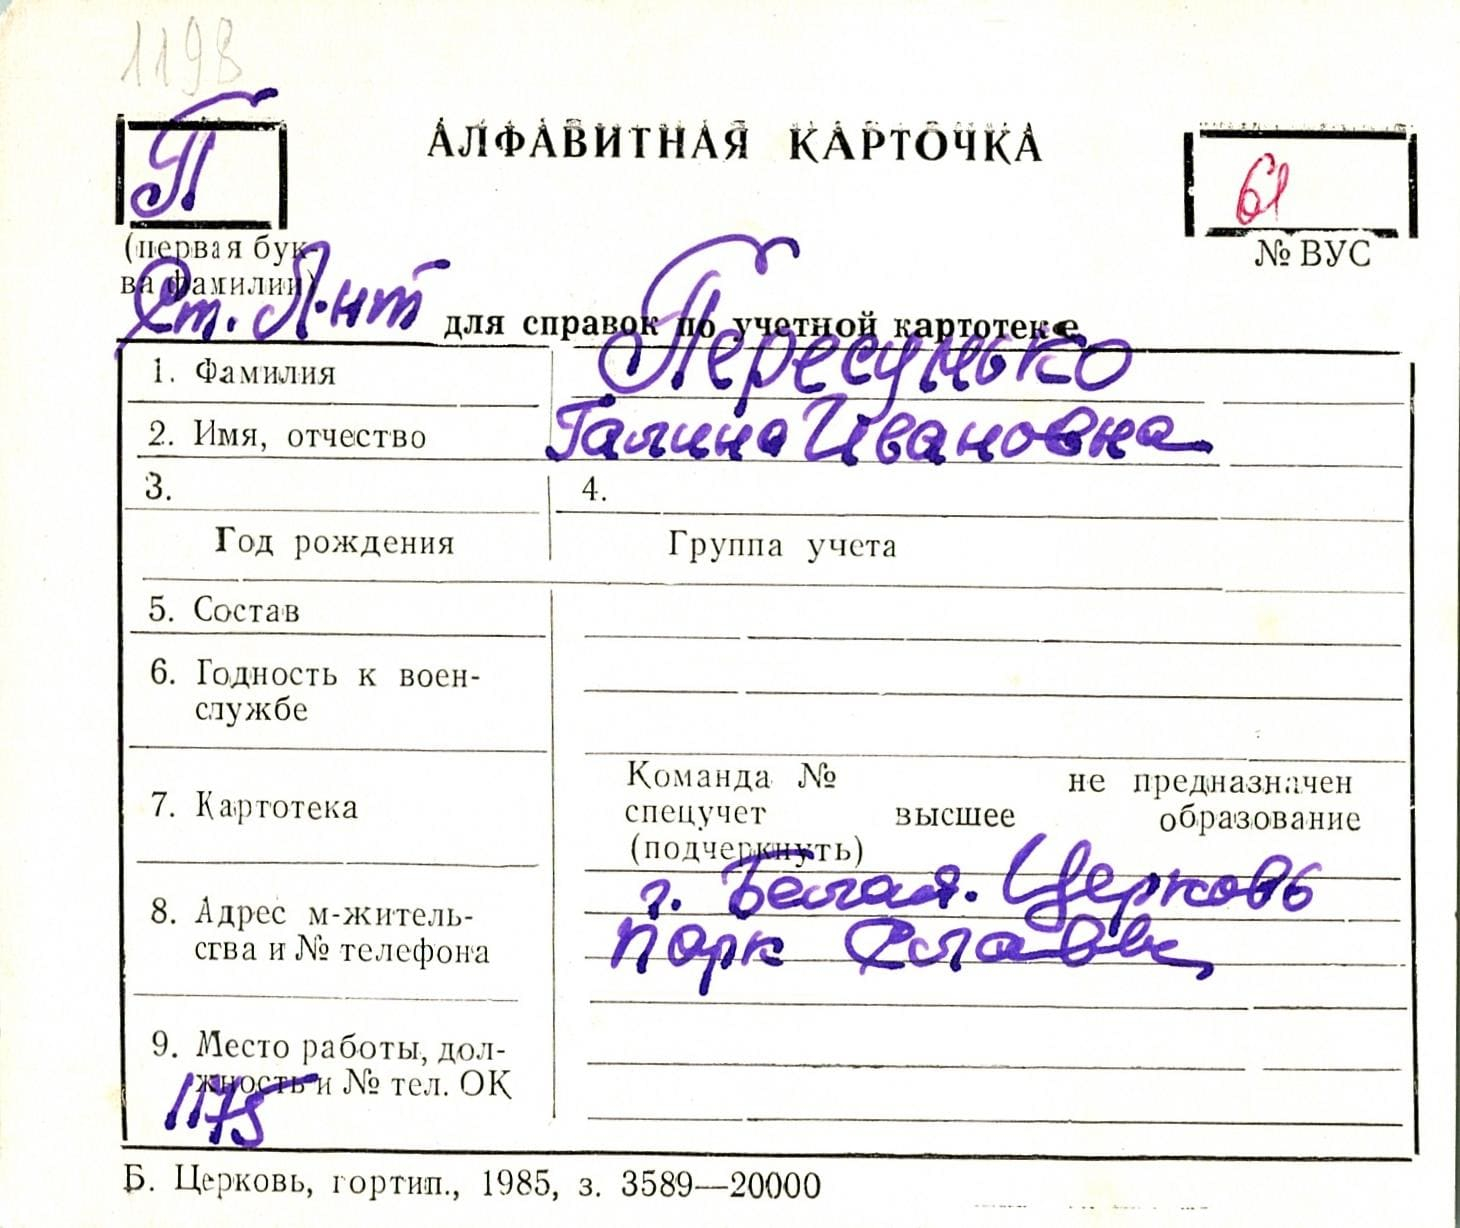 1193
П
АЛФАВИТНАЯ КАРТОЧКА
61
(первая бук-
ва фамилии)
№ ВУС
Ст. Л-нт
для справок по учетной картотеке
1. Фамилия Пересунько
2. Имя, отчество Галина Ивановна
3. 4.
Год рождения Группа учета
5. Состав
6. Годность к воен-
службе
7. Картотека
Команда № не предназначен
спецучет высшее образование
(подчеркнуть)
8. Адрес м-житель-
ства и № телефона
г. Белая. Церковь
парк Славы
9. Место работы, дол-
жность и № тел. ОК
1175
Б. Церковь, гортип., 1985, з. 3589—20000